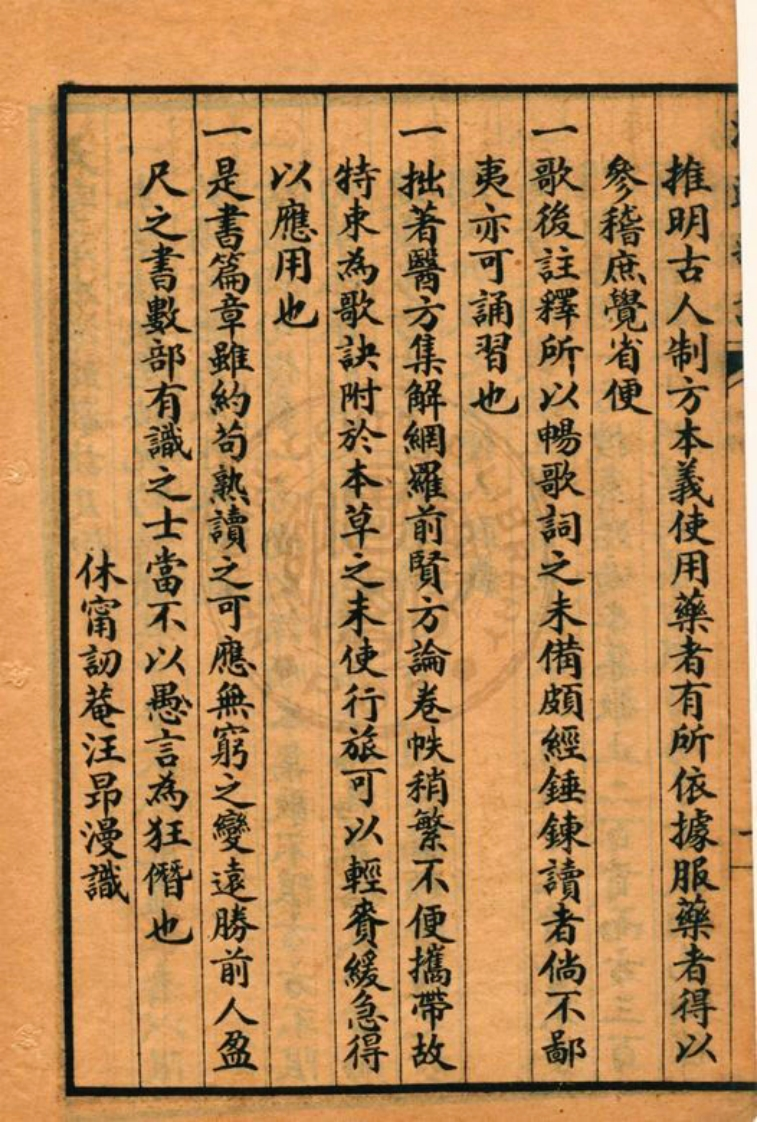 推明古人制方本義使用藥者有所依據服藥者得以
參稽庶覺省便
一歌後註釋所以暢歌詞之未備頗經錘鍊讀者倘不鄙
夷亦可誦習也
一拙著醫方集解網羅前賢方論卷帙稍繁不便攜帶故
特束為歌訣附於本草之末使行旅可以輕賫緩急得
以應用也
一是書篇章雖約苟熟讀之可應無窮之變遠勝前人盈
尺之書數部有識之士當不以愚言為狂僭也
休甯訒菴汪昂漫識